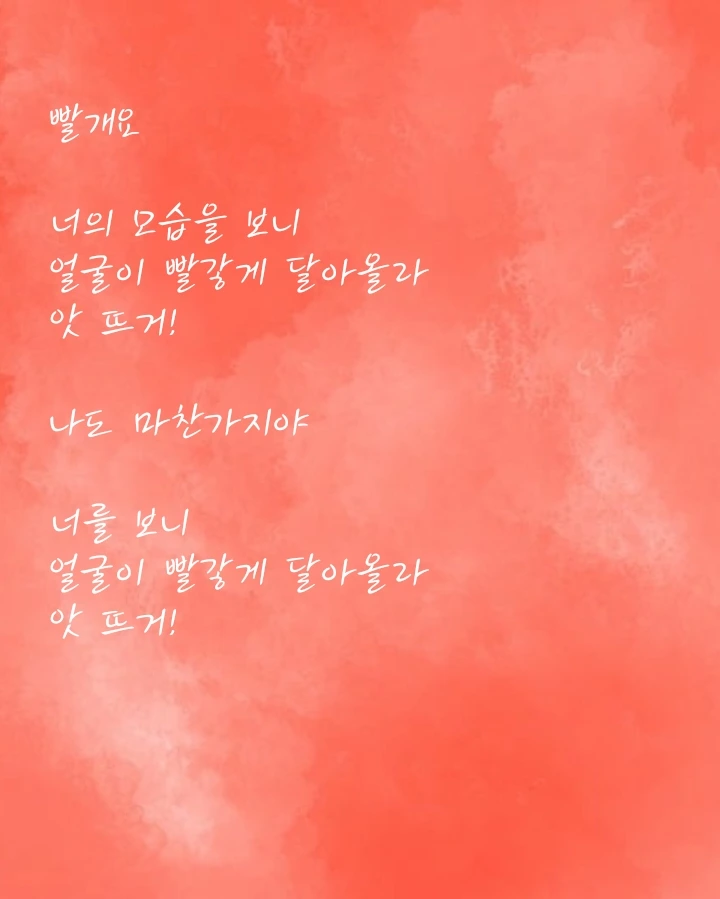 빨개요
너의 모습을 보니
얼굴이 빨갛게 달아올라
앗 뜨거!
나도 마찬가지야
너를 보니
얼굴이 빨갛게 달아올라
앗 뜨거!